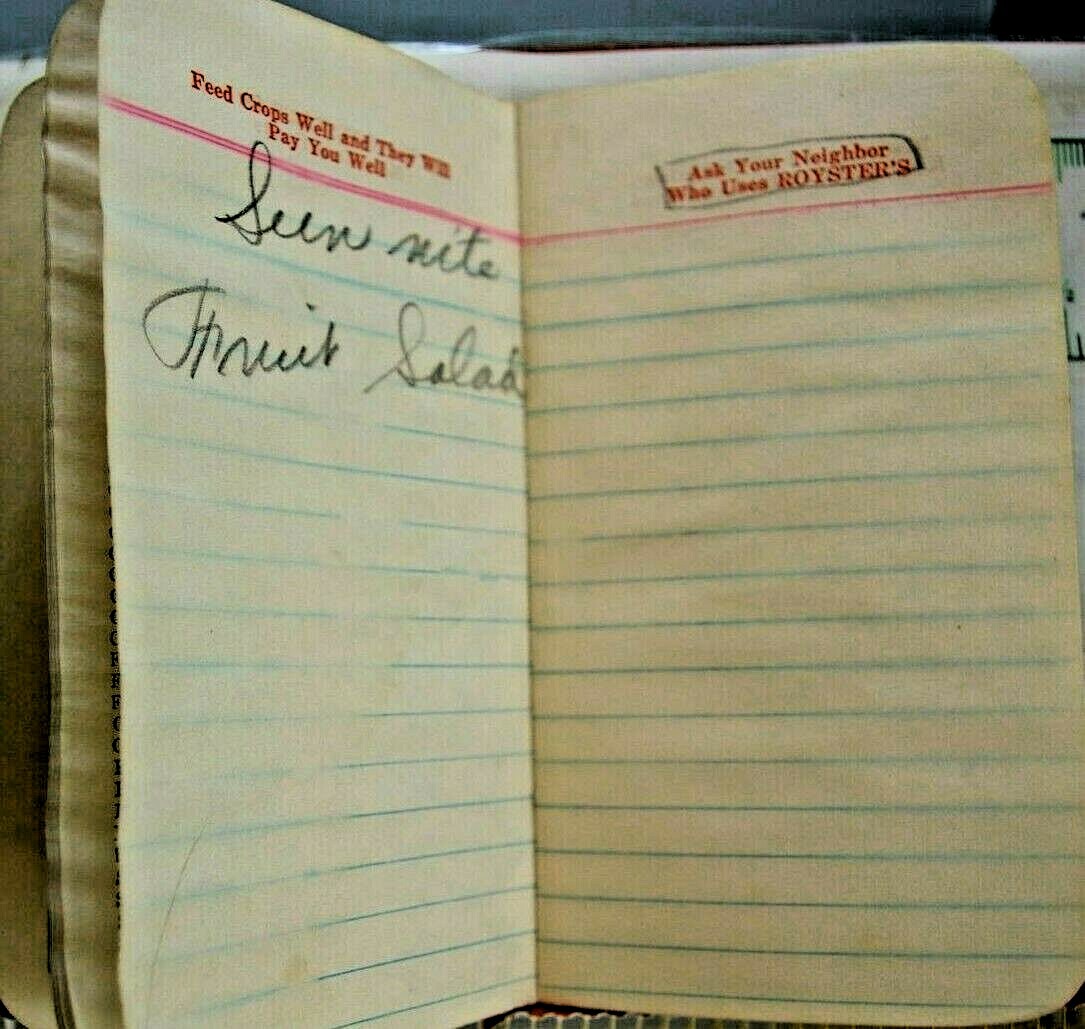 Feed Crops Well and They Will
Pay You Well
Seen nite
Fruit Salad
Ask Your Neighbor
Who Uses ROYSTER'S